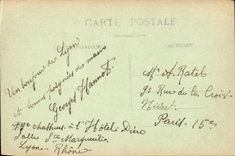 CARTE POSTALE
CORRESPONDANCE
ADRESSE
Un bonjour de Lyon
et bonnes poignées de main
Georges
à l'Hôtel Dieu
Salle Ste Marguerite
Lyon - Rhône
Mr A. Ratel
90. Rue de la Croix
Nivert
Paris - 15e